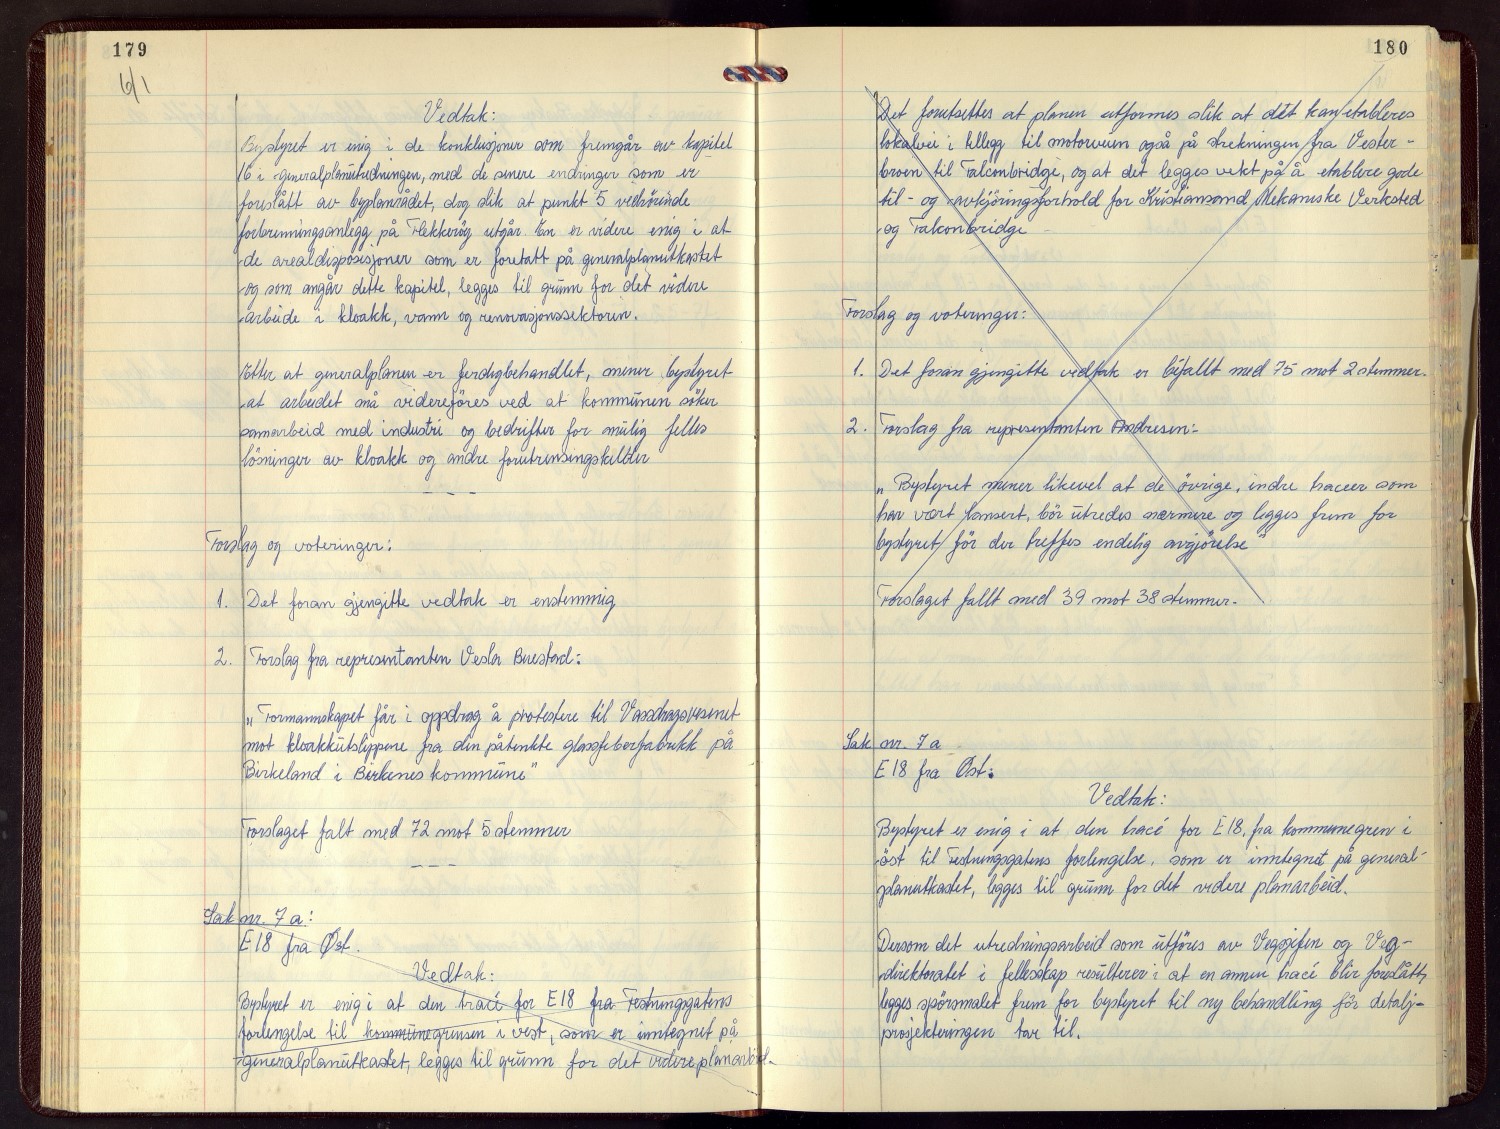 179
6/1
Vedtak:
Bystyret er enig i de konklusjoner som fremgår av kapitel
16 i generalplanutredningen, med de senere endringer som er
foreslått av byplanrådet, dog slik at punkt 5 vedrörende
forbrenningsanlegg på Flekkeröy utgår. En er videre enig i at
de arealdisposisjoner som er foretatt på generalplanutkastet
og som angår dette kapitel, legges til grunn for det videre
arbeide i kloakk, vann og renovasjonssektoren.
Etter at generalplanen er ferdigbehandlet, mener bystyret
at arbeidet må videreföres ved at kommunen söker
samarbeid med industri og bedrifter for mulig felles
lösninger av kloakk og andre forurensingskilder
- - -
Forslag og voteringer:
1. Det foran gjengitte vedtak er enstemmig
2. Forslag fra representanten Vesla Birestad:
„Formannskapet får i oppdrag å protestere til Vassdragsvesenet
mot kloakkutslippene fra den påtenkte glassfiberfabrikk på
Birkeland i Birkenes kommune"
Forslaget falt med 72 mot 5 stemmer
- - -
Sak nr. 7a:
E 18 fra Øst.
Vedtak:
Bystyret er enig i at den tracé for E 18 fra Festningsgatens
forlengelse til kommunegrensen i vest, som er inntegnet på
generalplanutkastet, legges til grunn for det videre planarbeid.
180
Det forutsettes at planen utformes slik at det kan etableres
lokalvei i tillegg til motorveien også på strekningen fra Vester-
broen til Falconbridge, og at det legges vekt på å etablere gode
til- og avkjöringsforhold for Kristiansand Mekaniske Verksted
og Falconbridge
Forslag og voteringer:
1. Det foran gjengitte vedtak er bifallt med 75 mot 2 stemmer.
2. Forslag fra representanten Andresen:
„Bystyret mener likevel at de övrige, indre traceer som
har vært lansert, bör utredes nærmere og legges frem for
bystyret för der treffes endelig avgjörelse"
Forslaget fallt med 39 mot 38 stemmer.
Sak nr. 7a
E 18 fra Øst:
Vedtak:
Bystyret er enig i at den tracé for E 18, fra kommunegren i
öst til Festningsgatens forlengelse, som er inntegnet på general-
planutkastet, legges til grunn for det videre planarbeid.
Dersom det utredningsarbeid som utföres av Vegsjefen og Veg-
direktoratet i fellesskap resulterer i at en annen tracé blir foreslått,
legges spörsmalet frem for bystyret til ny behandling för detalj-
prosjekteringen tar til.